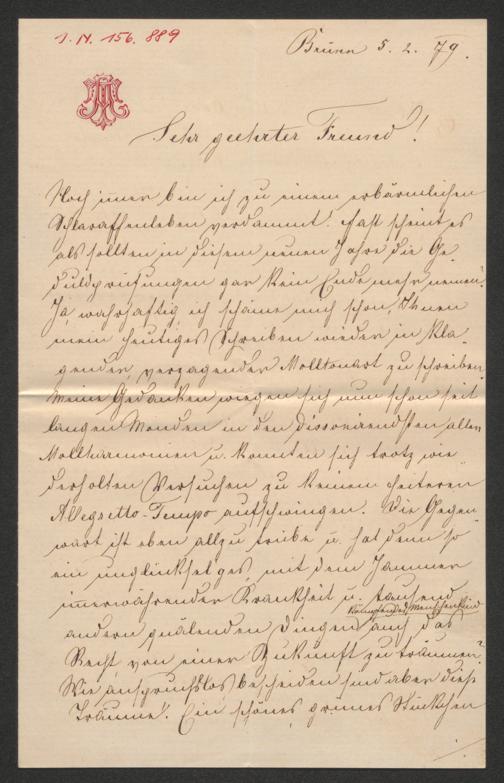 J. N. 156.889
Brünn 5. 2. 79.
Sehr geehrter Freund!
Noch immer bin ich zu einem erbärmlichen
Schlaraffenleben verdammt! Fast scheint es
als sollten in diesem neuen Jahre die Ge-
duldprüfungen gar kein Ende mehr nemen.
Ja, wahrhaftig ich schäme mich schon, Ihnen
mein heutiges Schreiben wieder in kla-
gender, verzagender Molltonart zu schreiben.
Meine Gedanken wiegen sich nun schon seit
langen Monden in den dissonirendsten aller
Mollharmonien u. konnten sich trotz wie
derholten Versuchen zu keinem heiteren
Allegretto-Tempo aufschwingen. Die Gegen
wart ist eben allzu trübe u. hat denn so
ein unglückseliges, mit dem Jammer
immerwährender Krankheit u. tausend
kämpfendes Menschenkind
andern quälenden Dingen auch das
Recht, von einer Zukunft zu träumen?
Wie anspruchslos bescheiden sind aber diese
Träume! Ein schönes, grünes Stückchen